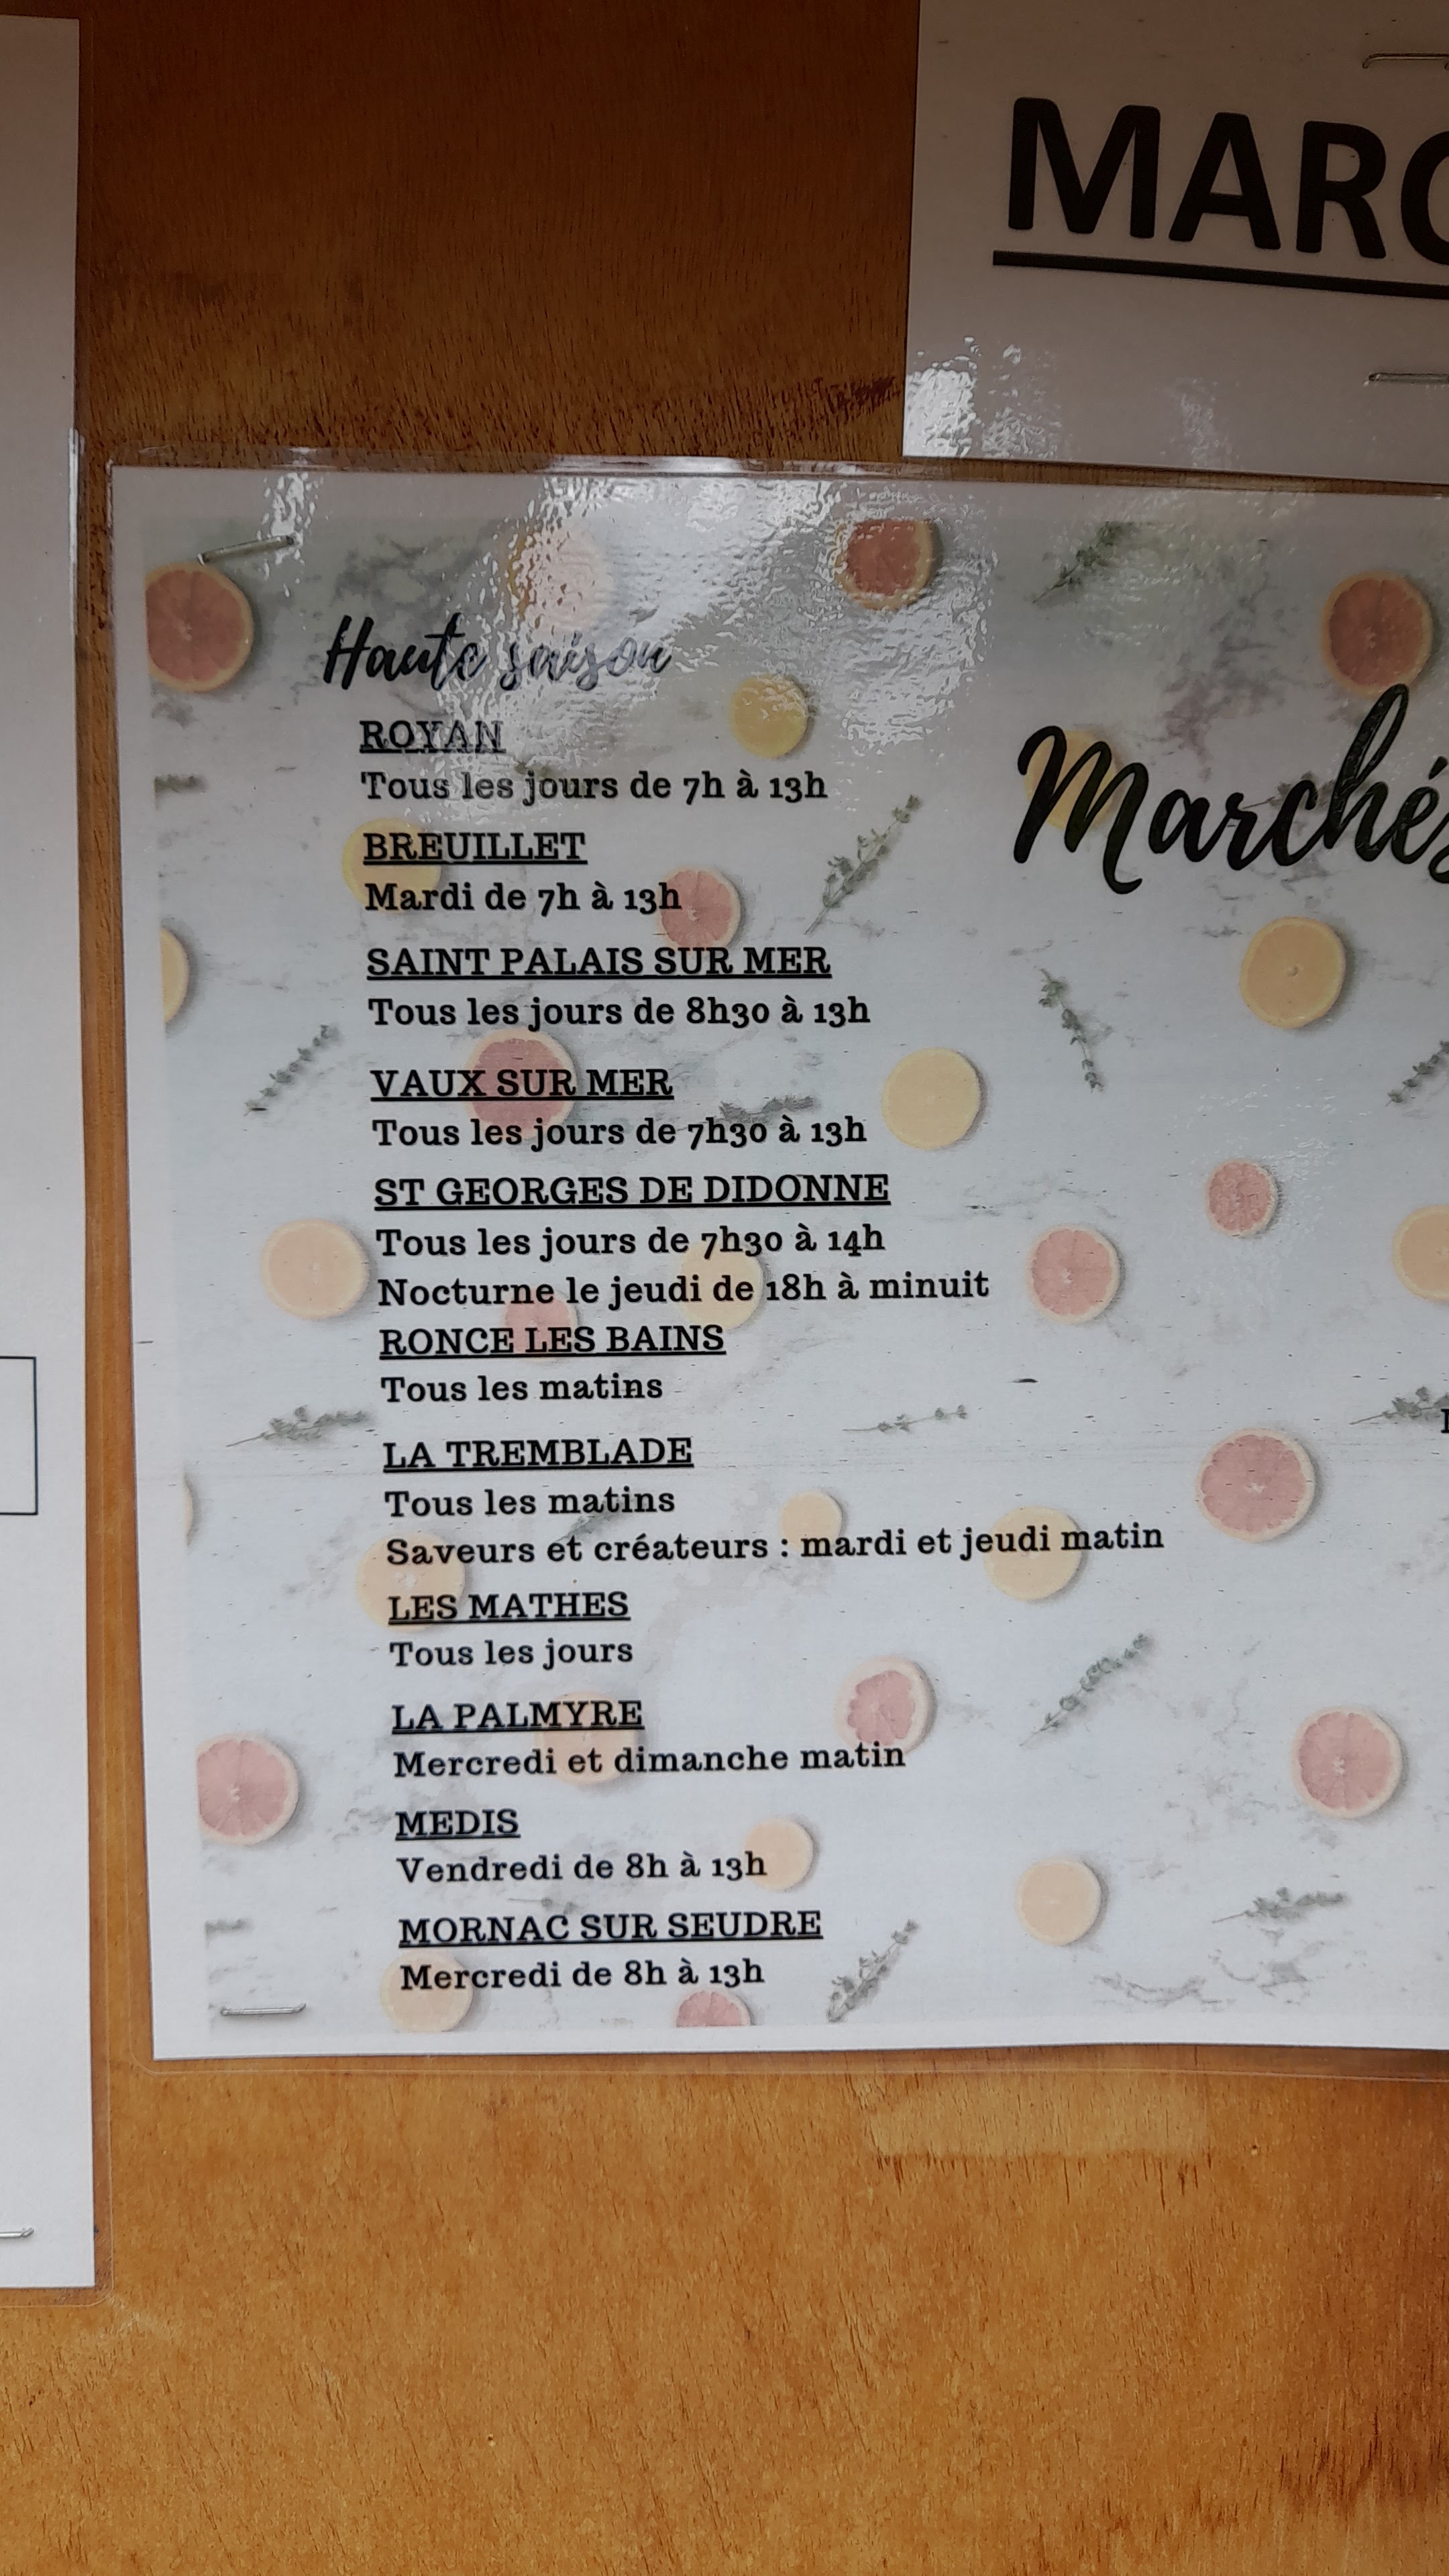 MARC
Haute saison
ROYAN
Tous les jours de 7h à 13h
BREUILLET
Mardi de 7h à 13h
SAINT PALAIS SUR MER
Tous les jours de 8h30 à 13h
VAUX SUR MER
Tous les jours de 7h30 à 13h
ST GEORGES DE DIDONNE
Tous les jours de 7h30 à 14h
Nocturne le jeudi de 18h à minuit
RONCE LES BAINS
Tous les matins
LA TREMBLADE
Tous les matins
Saveurs et créateurs : mardi et jeudi matin
LES MATHES
Tous les jours
LA PALMYRE
Mercredi et dimanche matin
MEDIS
Vendredi de 8h à 13h
MORNAC SUR SEUDRE
Mercredi de 8h à 13h
Marchés